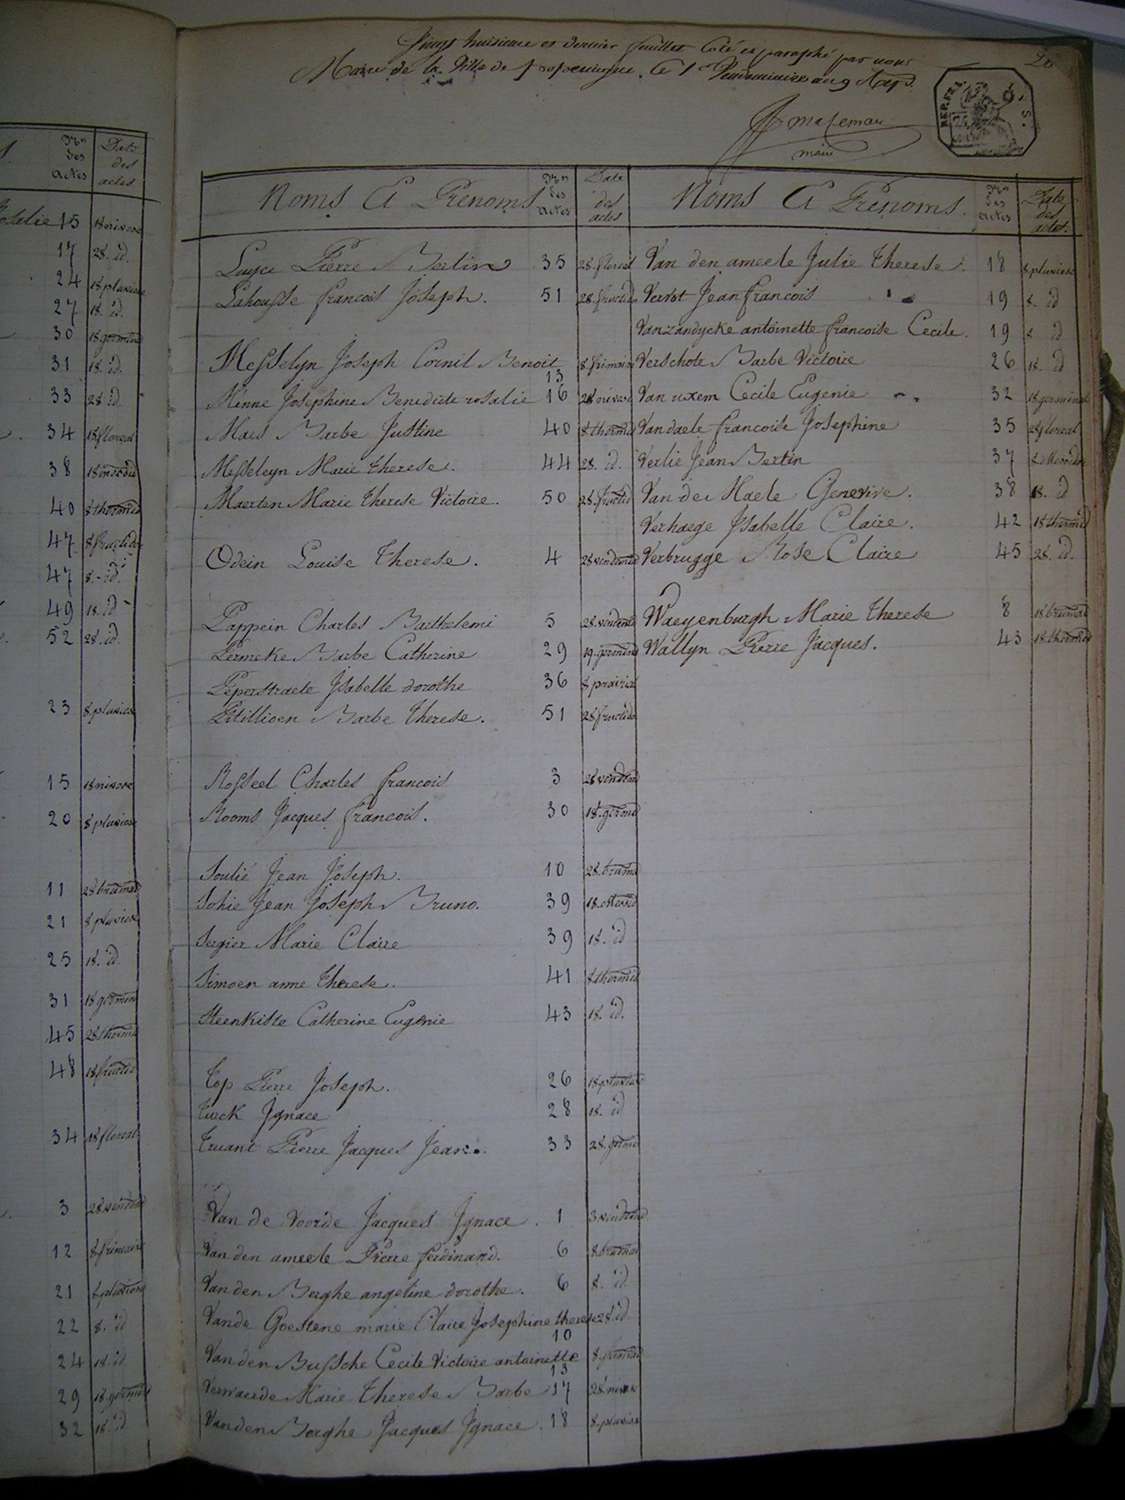 Vingt huitieme et dernier feuillet Coté et paraphé par nous
Maire de la Ville de le 1er Vendemiaire an 9
28
REP. FRA.
maire
Nros des actes
Date des actes
15 18 nivose
17 28. id.
24 18 pluviose
27 18. id.
30 18 germinal
31 18. id.
33 28. id.
34 18 floreal
38
40 8 thermid
47 8 fructidor
47 8. id.
49 18. id
52 28. id.
23 8 pluviose
15 18 nivose
20 8 pluviose
11 28 brumaire
21 8 pluviose
25 18. id
31 18 germin
45 28 thermid
48 18 fructid
34 18 floreal
3 28 vendem
12 8 frimaire
21 8 pluviose
22 8. id
24 18. id
29 18 germin
32 18. id
Noms Et Prenoms
Nros des actes
Date des actes
Luyce Pierre Bertin 35 28 floreal
Lahousse francois Joseph. 51 28 fructid
Messelyn Joseph Cornil Benoit 13 8 frimaire
Minne Josephine Benedicte rosalie 16 28 nivose
Maes Barbe Justine 40 8 thermid
Messeleyn Marie therese. 44 28. id.
Maerten Marie therese Victoire. 50 28 fructid
Odein Louise therese. 4 28 vendemia
Pappein Charles Barthelemi 5 28 vendem
Permeke Barbe Catherine 29 19 germinal
Peperstraete Isabelle dorothe 36 8 prairial
Petillioen Barbe therese. 51 28 fructido
Rosseel Charles francois 3 28 vendem
Rooms Jacques francois. 30 18 germd
Soulié Jean Joseph. 10 28 brumd
Sohie Jean Joseph Bruno. 39 18
Sergier Marie Claire 39 18. id
Simoen anne therese. 41 8 thermid
Steenkiste Catherine Eugenie 43 18. id.
Top Pierre Joseph. 26 18 pluviose
turck Ignace 28 18. id
truant Pierre Jacques Jean. 33 28 germd
Van de Voorde Jacques Ignace. 1 3 vendemd
Van den ameele Pierre ferdinand. 6 8 brumd
Van den Berghe angeline dorothe. 6 8. id
Vande Goestene marie Claire Josephine therese 10 28. id
Van den Bussche Cecile Victoire antoinette 13 8
Verwaerde Marie therese Barbe 17 28 nivose
Vanden Berghe Jacques Ignace. 18 8 pluviose
Noms Et Prenoms.
Nros des actes
Date des actes.
Van den ameele Julie therese. 18 8 pluviose
Verrot Jean francois 19 8. id
Vanzandycke antoinette francoise Cecile. 19 8 id
Verschote Barbe Victoire 26 18. id
Van uxem Cecile Eugenie 32 18 germinal
Vandaele francoise Josephine 35 28 floreal
Verlie Jean Bertin 37 8
Van der Haele Genevive. 38 18. id
Verhaege Isabelle Claire. 42 18 thermid
Verbrugge Rose Claire 45 28. id.
Waeyenburgh Marie therese 8 18 brumaire
Wallyn Pierre Jacques. 43 18 thermid